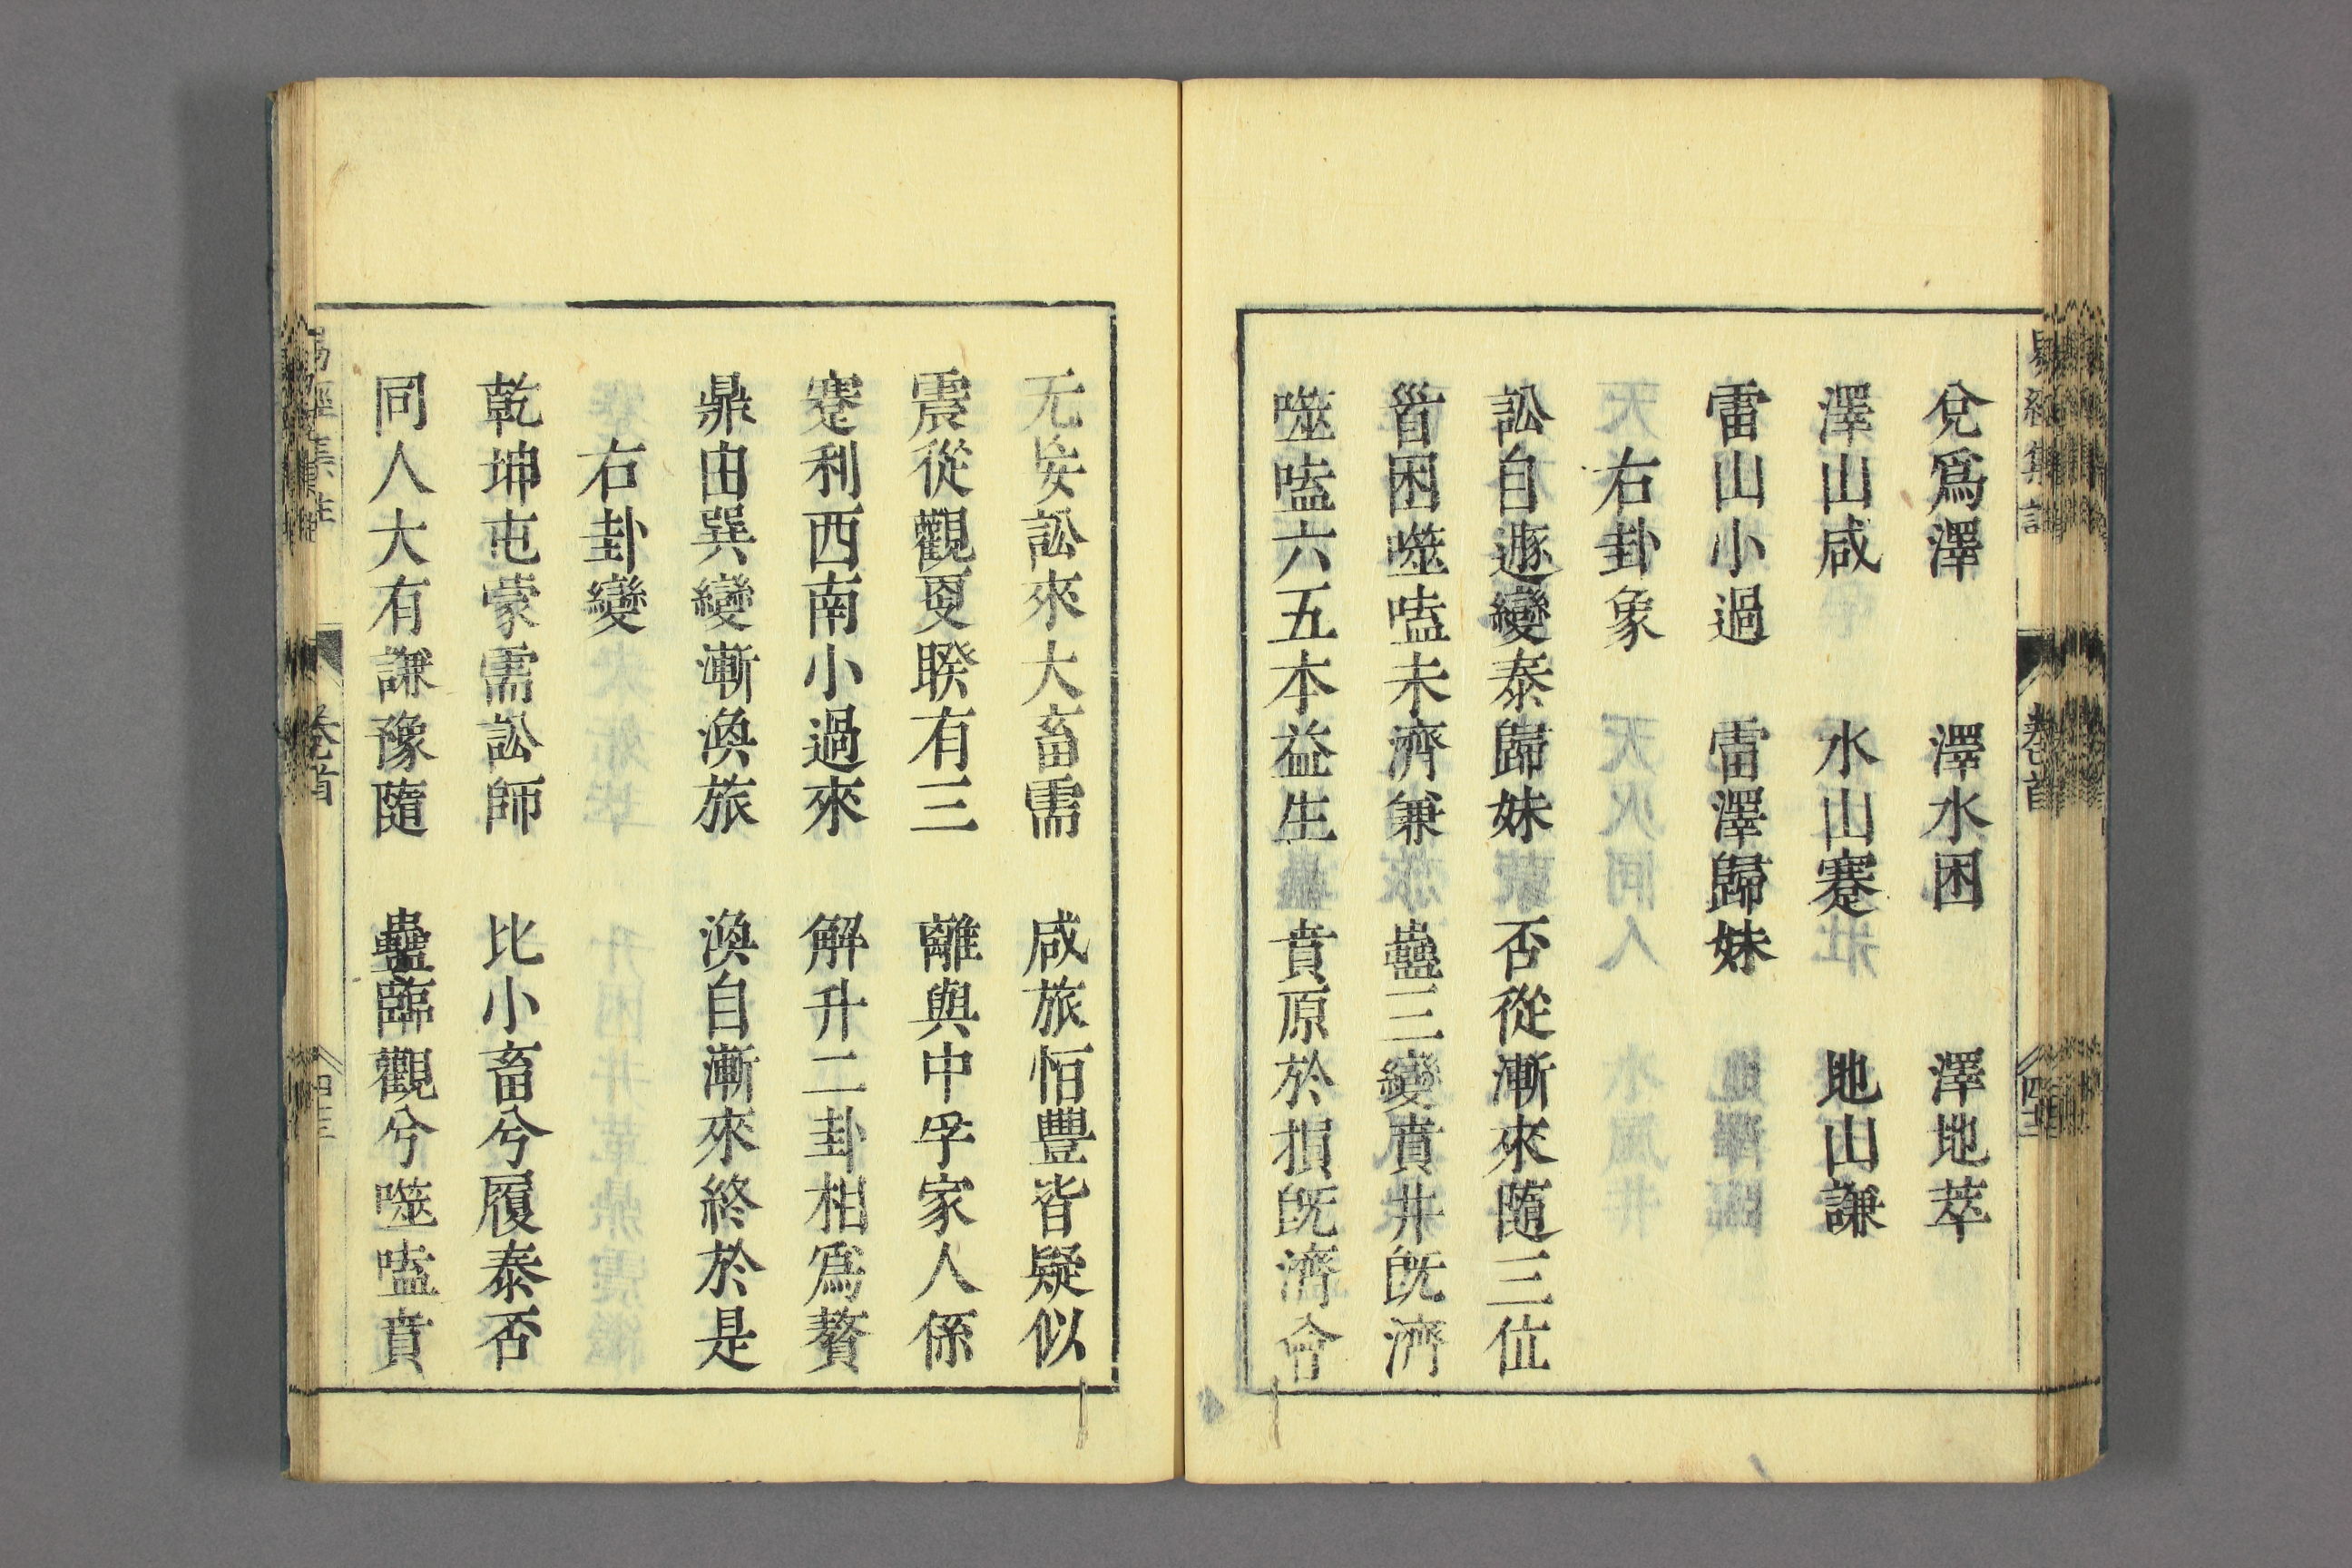 兌爲澤　澤水困　澤地萃
澤山咸　水山蹇　地山謙
雷山小過　雷澤歸妹
右卦象
訟自遯變泰歸妹　否從漸來隨三位
首困噬嗑未濟兼　蠱三變賁井旣濟
噬嗑六五本益生　賁原於損旣濟會
无妄訟來大畜需　咸旅恒豐皆疑似
震從觀更睽有三　離與中孚家人係
蹇利西南小過來　解升二卦相爲贅
鼎由巽變漸渙旅　渙自漸來終於是
右卦變
乾坤屯蒙需訟師　比小畜兮履泰否
同人大有謙豫隨　蠱臨觀兮噬嗑賁
卷首